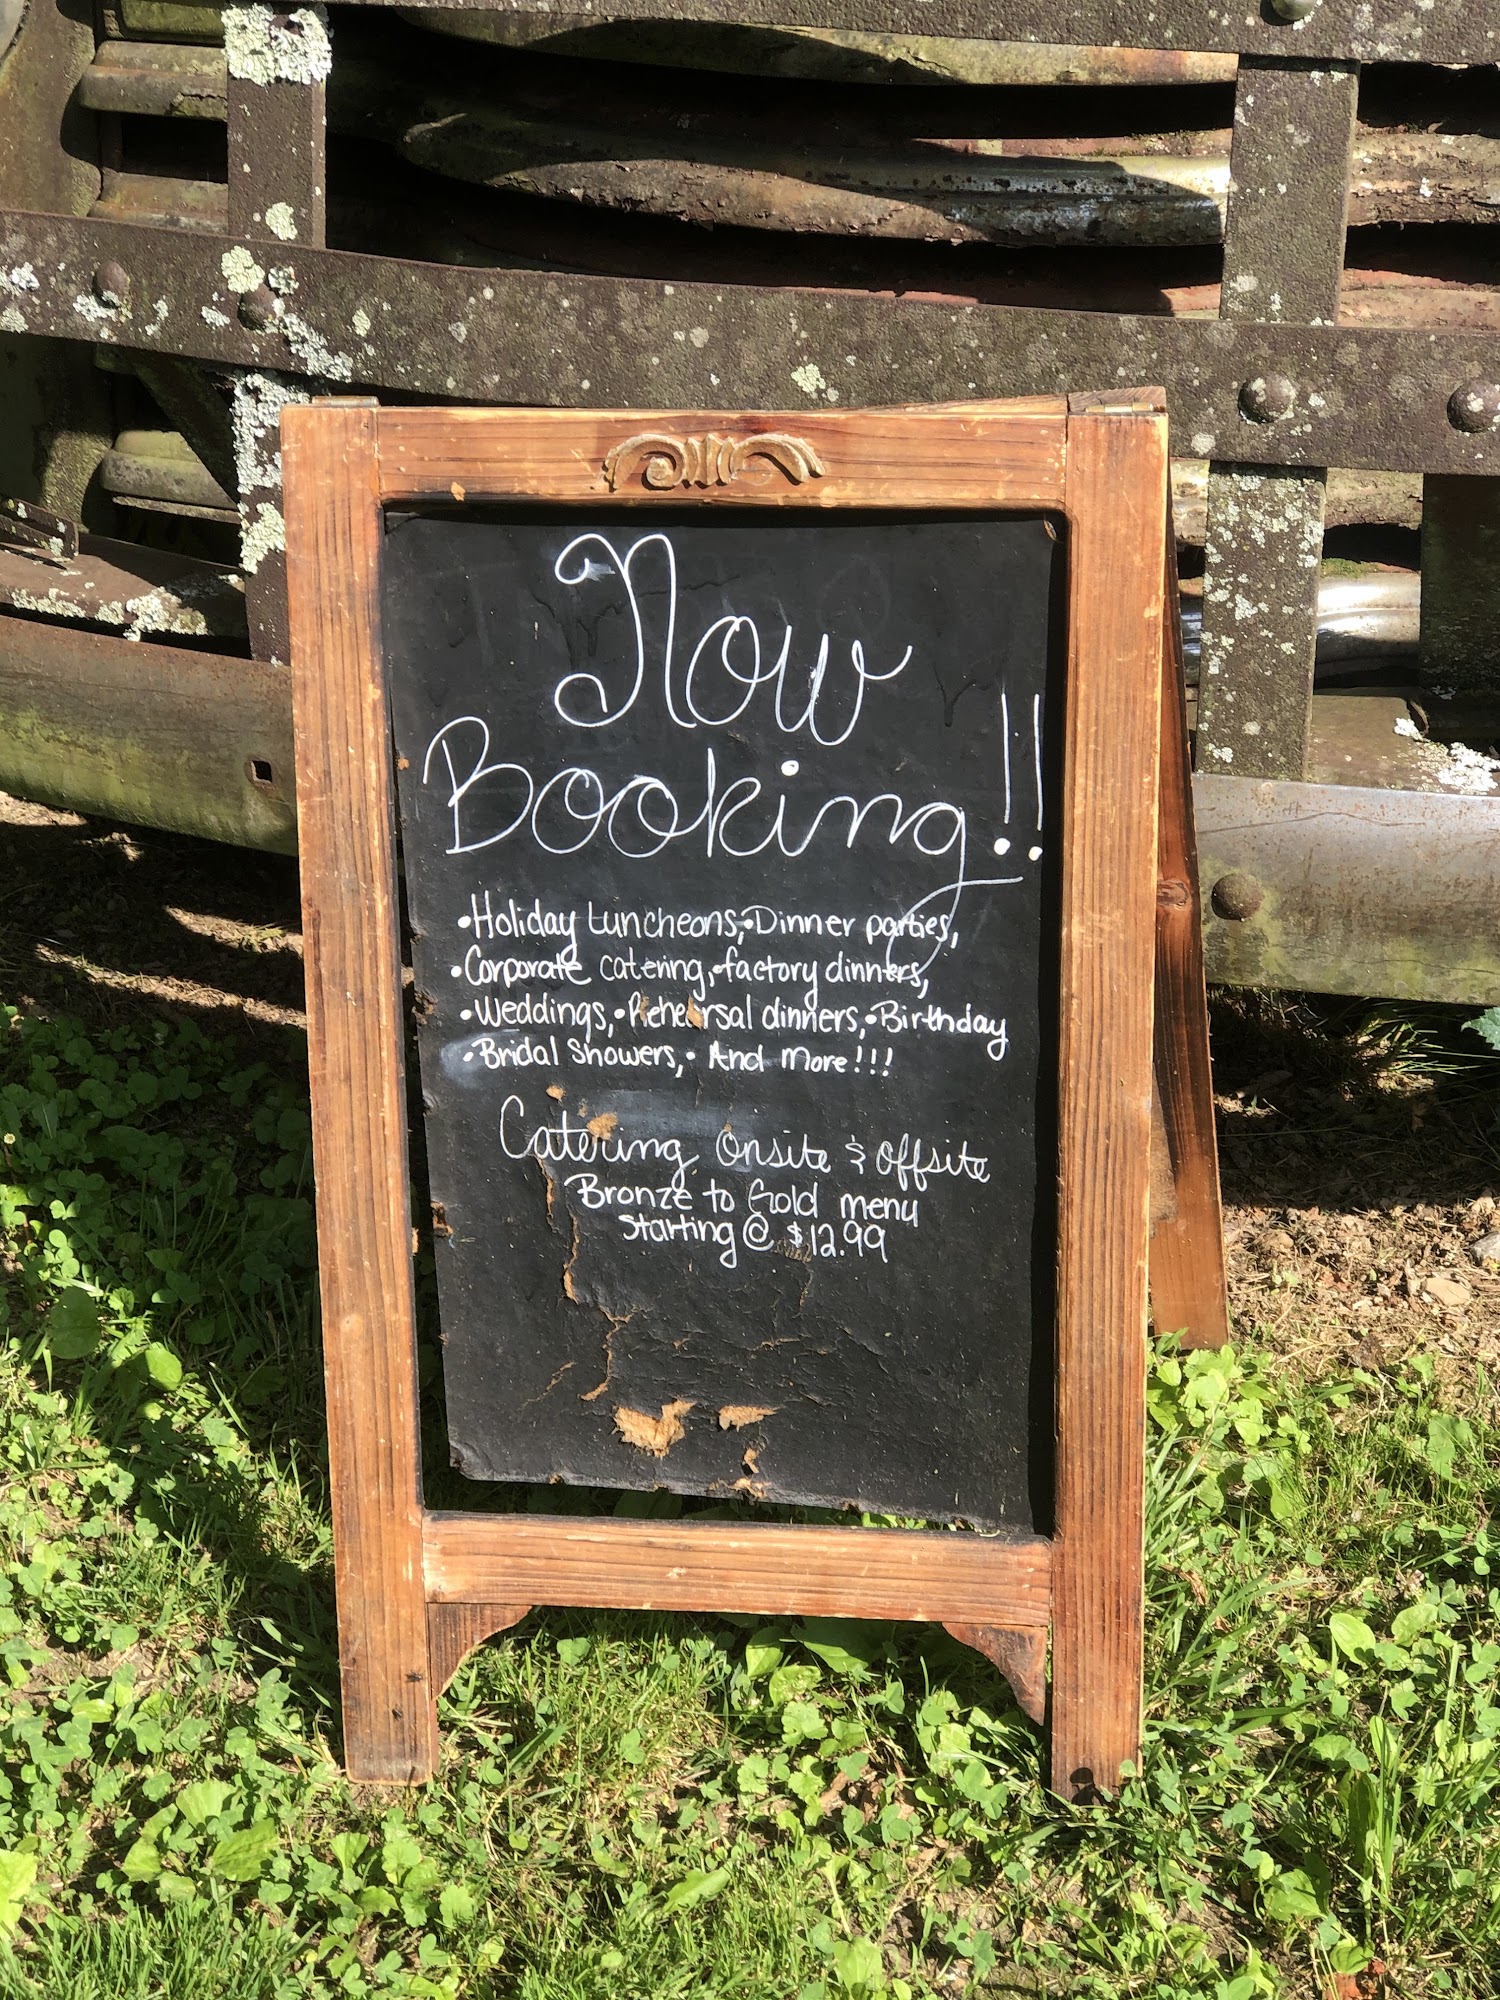 Now
Booking!!
•Holiday Luncheons,•Dinner parties,
•Corporate catering,•factory dinners,
•Weddings,•Rehearsal dinners,•Birthday
•Bridal Showers,• And More!!!
Catering Onsite & Offsite
Bronze to Gold menu
Starting @ $12.99